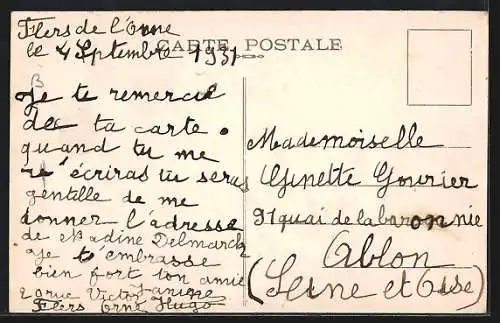 Flers de l'Orne
le 4 Septembre 1931
CARTE POSTALE
Je te remercie
de ta carte.
quand tu me
ré écriras tu serais
gentille de me
donner l'adresse
de Nadine Delmarch
Je t'embrasse
bien fort ton amie
Janine
20 rue Victor Hugo
Flers Orne
Mademoiselle
Ginette Gourier
91 quai de la baronnie
Ablon
(Seine et Oise)